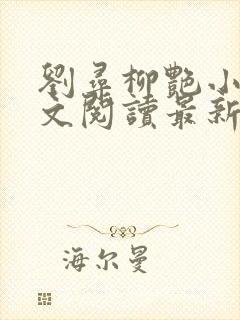 劉尋柳艷小
文閱讀最新
海尔曼